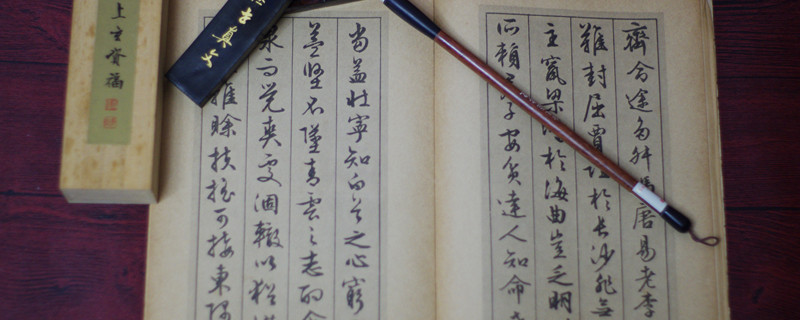 齊命途多舛馮唐易老李
難封屈賈誼於長沙非無
主竄梁於海曲豈乏明
所賴君子安貧達人知命
當益壯寧知白首之心窮
益堅不墜青雲之志酌
泉而覺爽處涸轍以猶
雖賒扶搖可接東隅